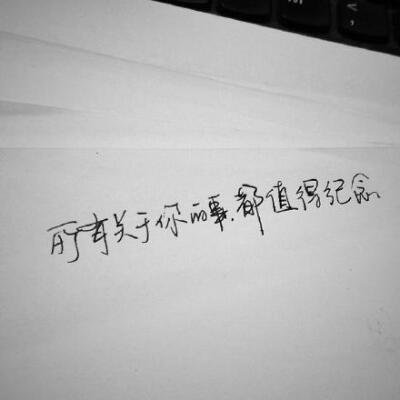 所有关于你的事.都值得纪念